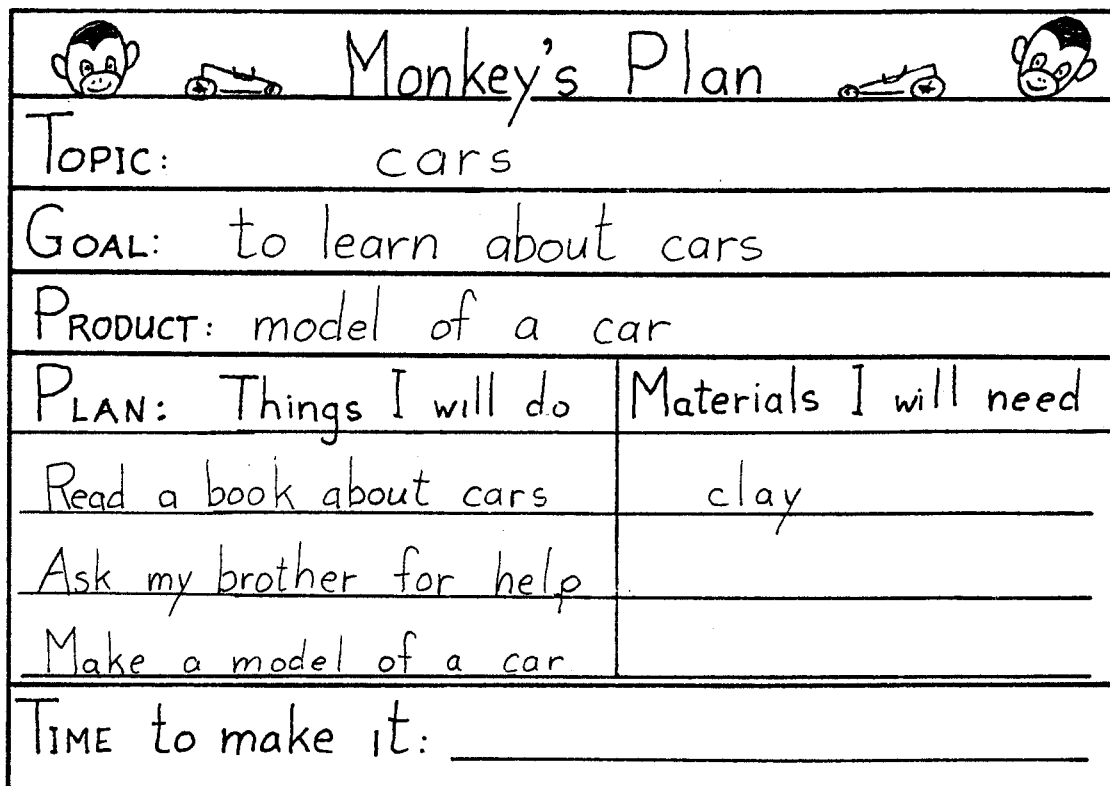 Monkey's Plan
TOPIC: cars
GOAL: to learn about cars
PRODUCT: model of a car
PLAN: Things I will do Materials I will need
Read a book about cars clay
Ask my brother for help
Make a model of a car
TIME to make it: